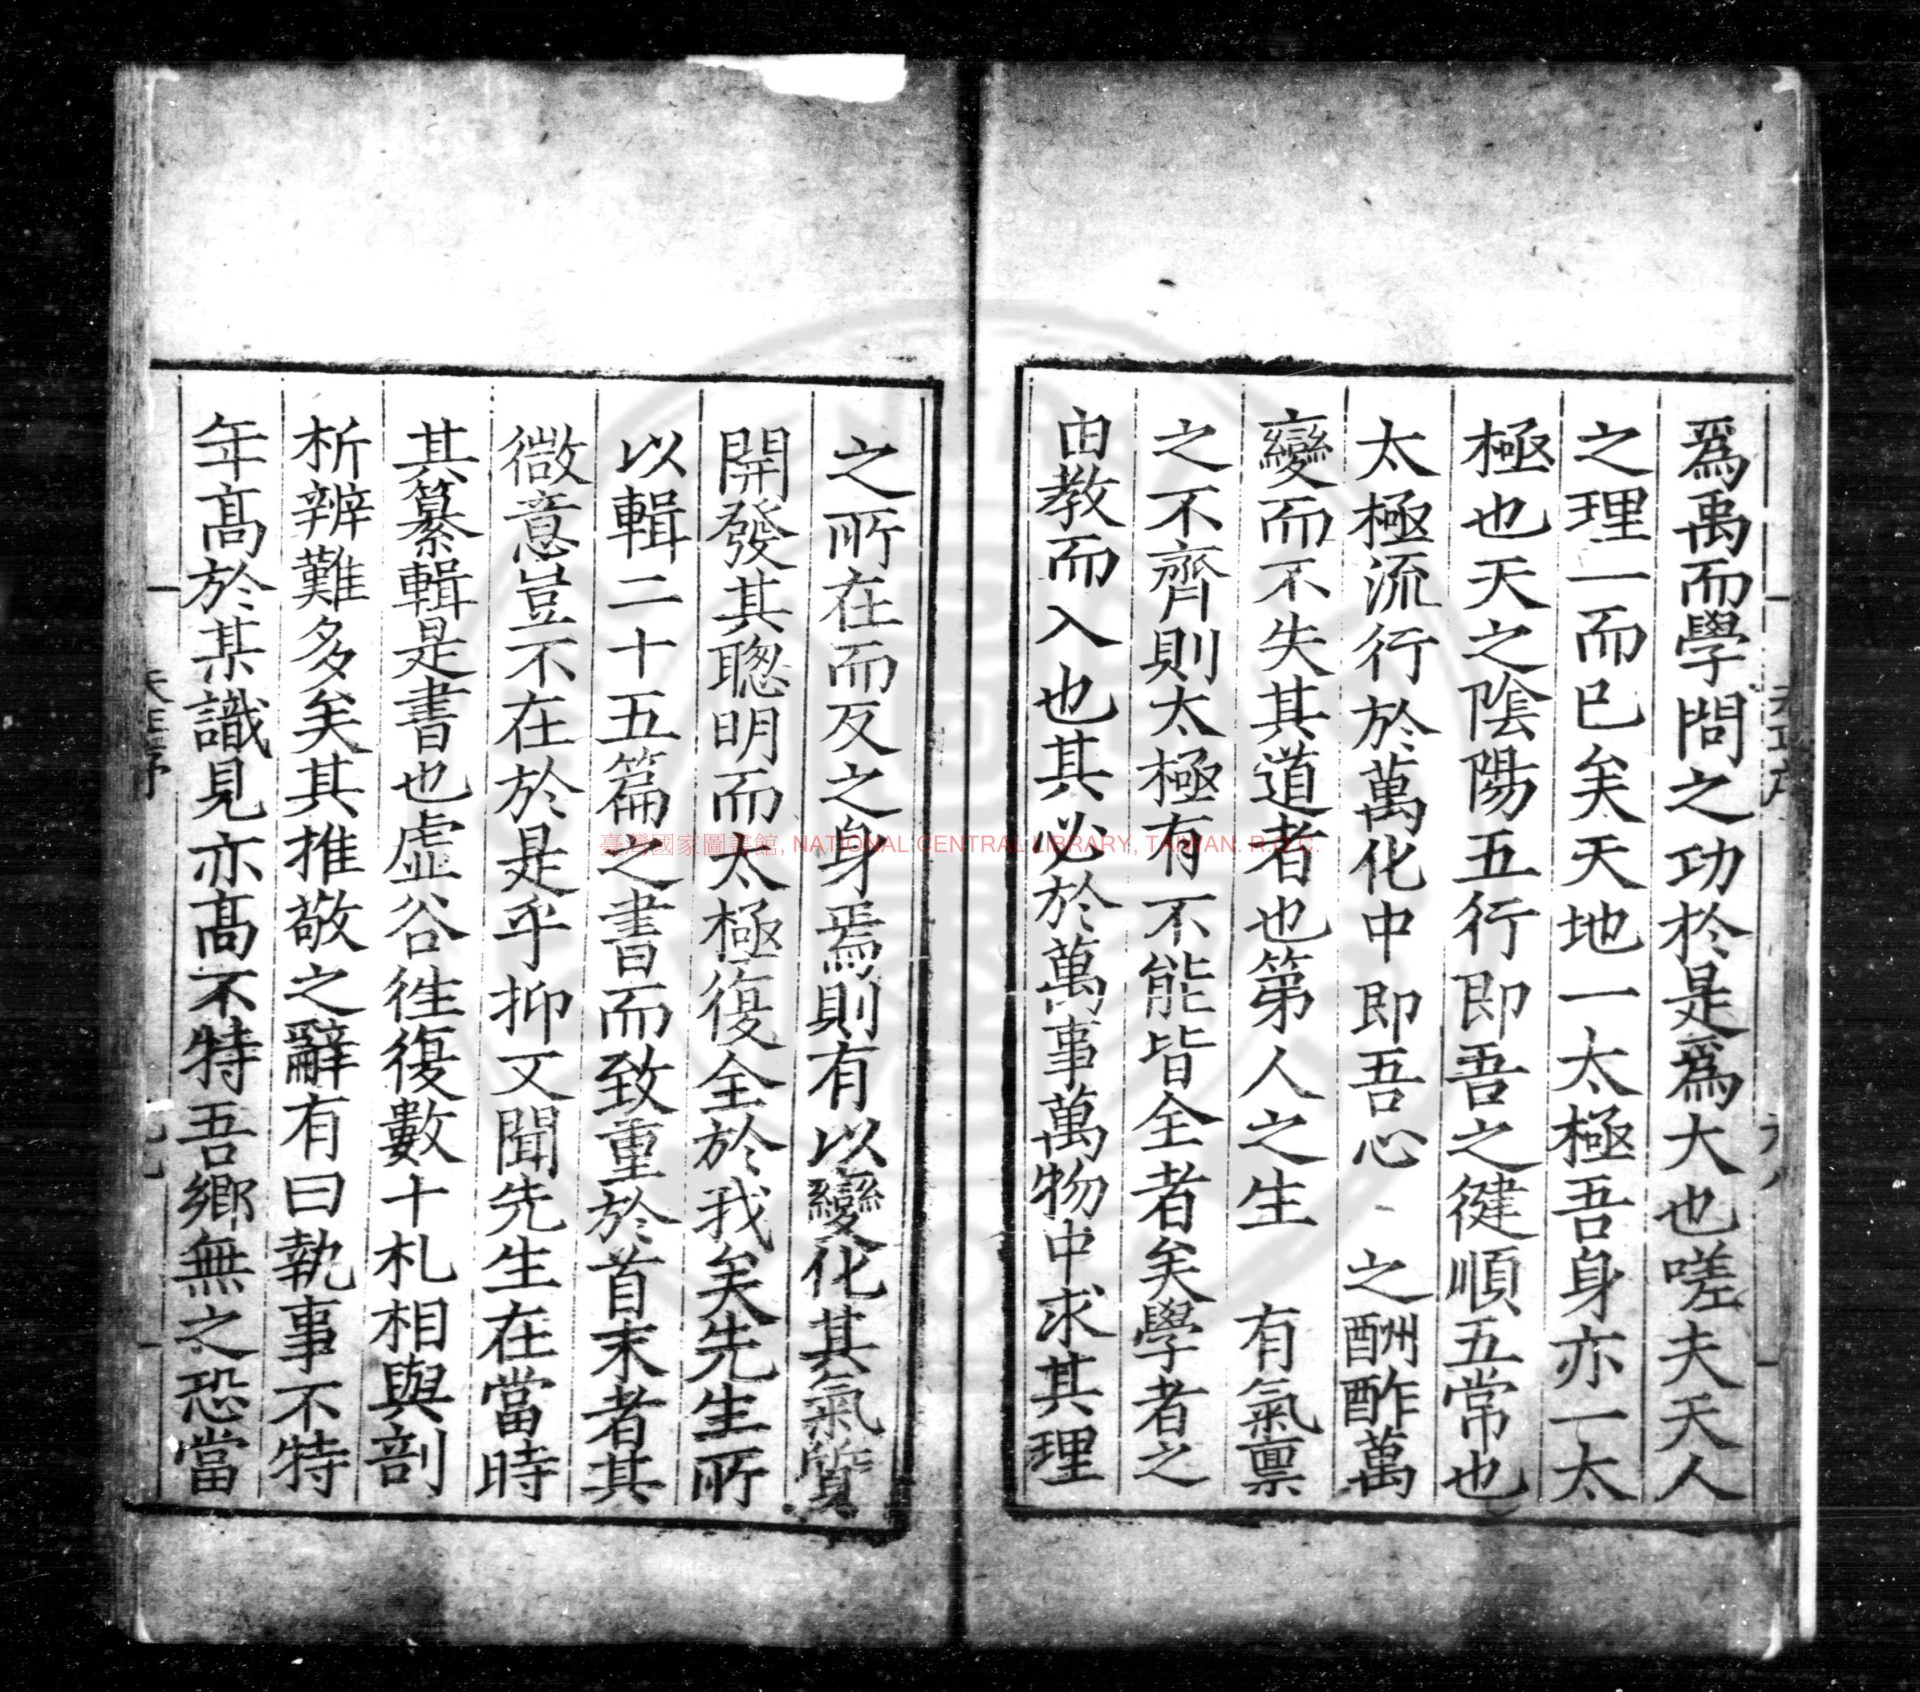 爲禹而學問之功於是爲大也嗟夫天人
之理一而已矣天地一太極吾身亦一太
極也天之陰陽五行即吾之健順五常也
太極流行於萬化中即吾心 之酬酢萬
變而不失其道者也第人之生 有氣禀
之不齊則太極有不能皆全者矣學者之
由教而入也其必於萬事萬物中求其理
之所在而反之身焉則有以變化其氣質
開發其聰明而太極復全於我矣先生所
以輯二十五篇之書而致重於首末者其
微意豈不在於是乎抑又聞先生在當時
其纂輯是書也虚谷徃復數十札相與剖
析辨難多矣其推敬之辭有曰執事不特
年高於某識見亦高不特吾鄉無之恐當
臺灣國家圖書館, NATIONAL CENTRAL LIBRARY, TAIWAN. R.O.C.